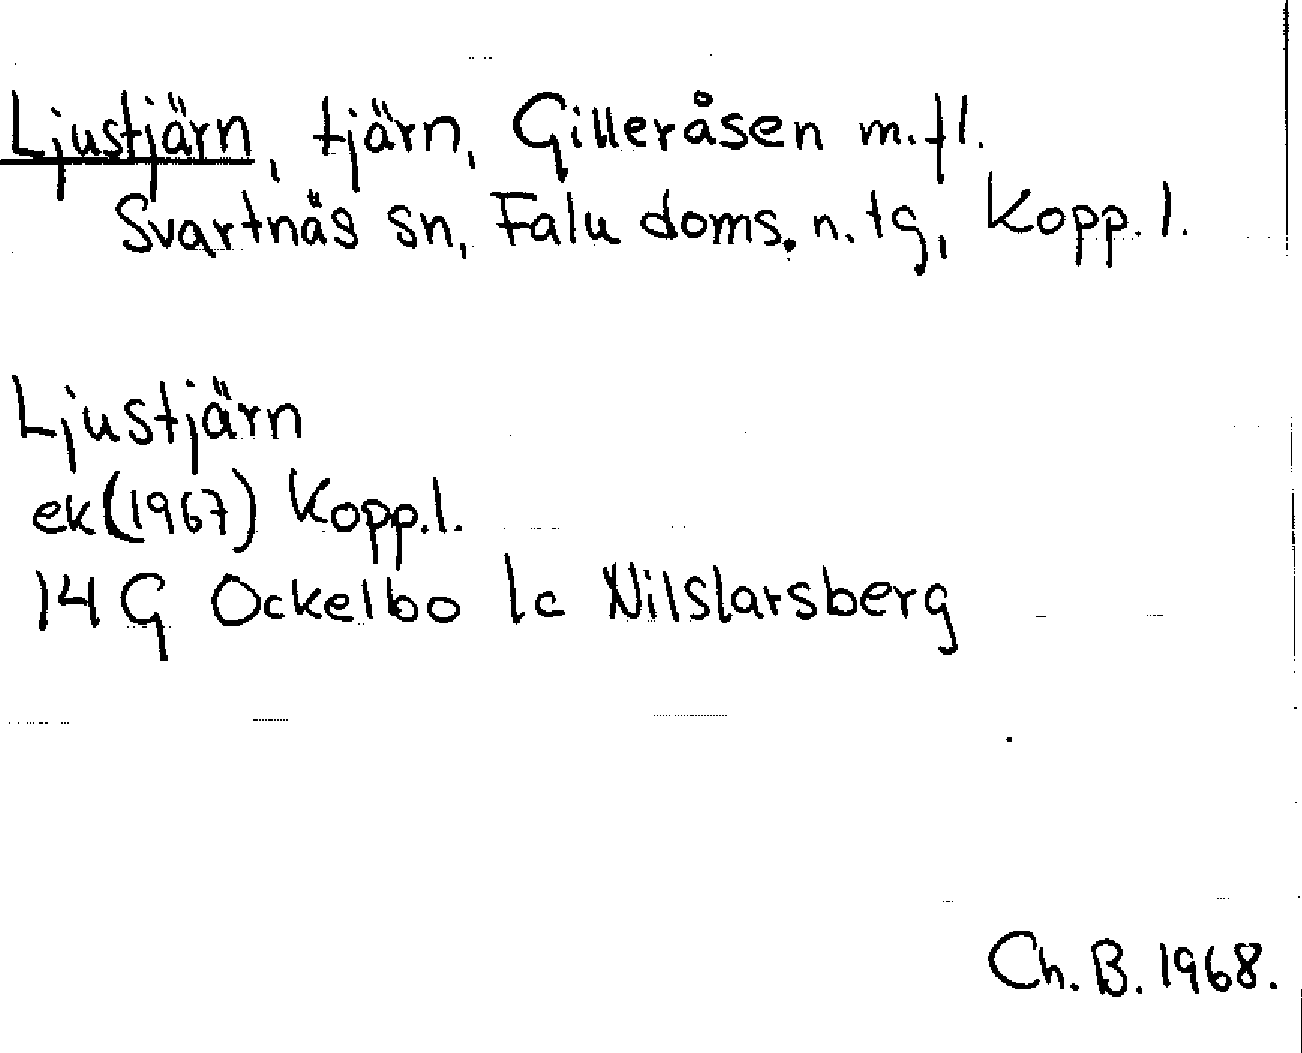 Ljustjärn, tjärn, Gilleråsen m.fl.
Svartnäs sn, Falu doms. n. tg, Kopp. l.
Ljustjärn
ek (1967) Kopp. l.
14 G Ockelbo 1c Nilslarsberg
Ch. B. 1968.